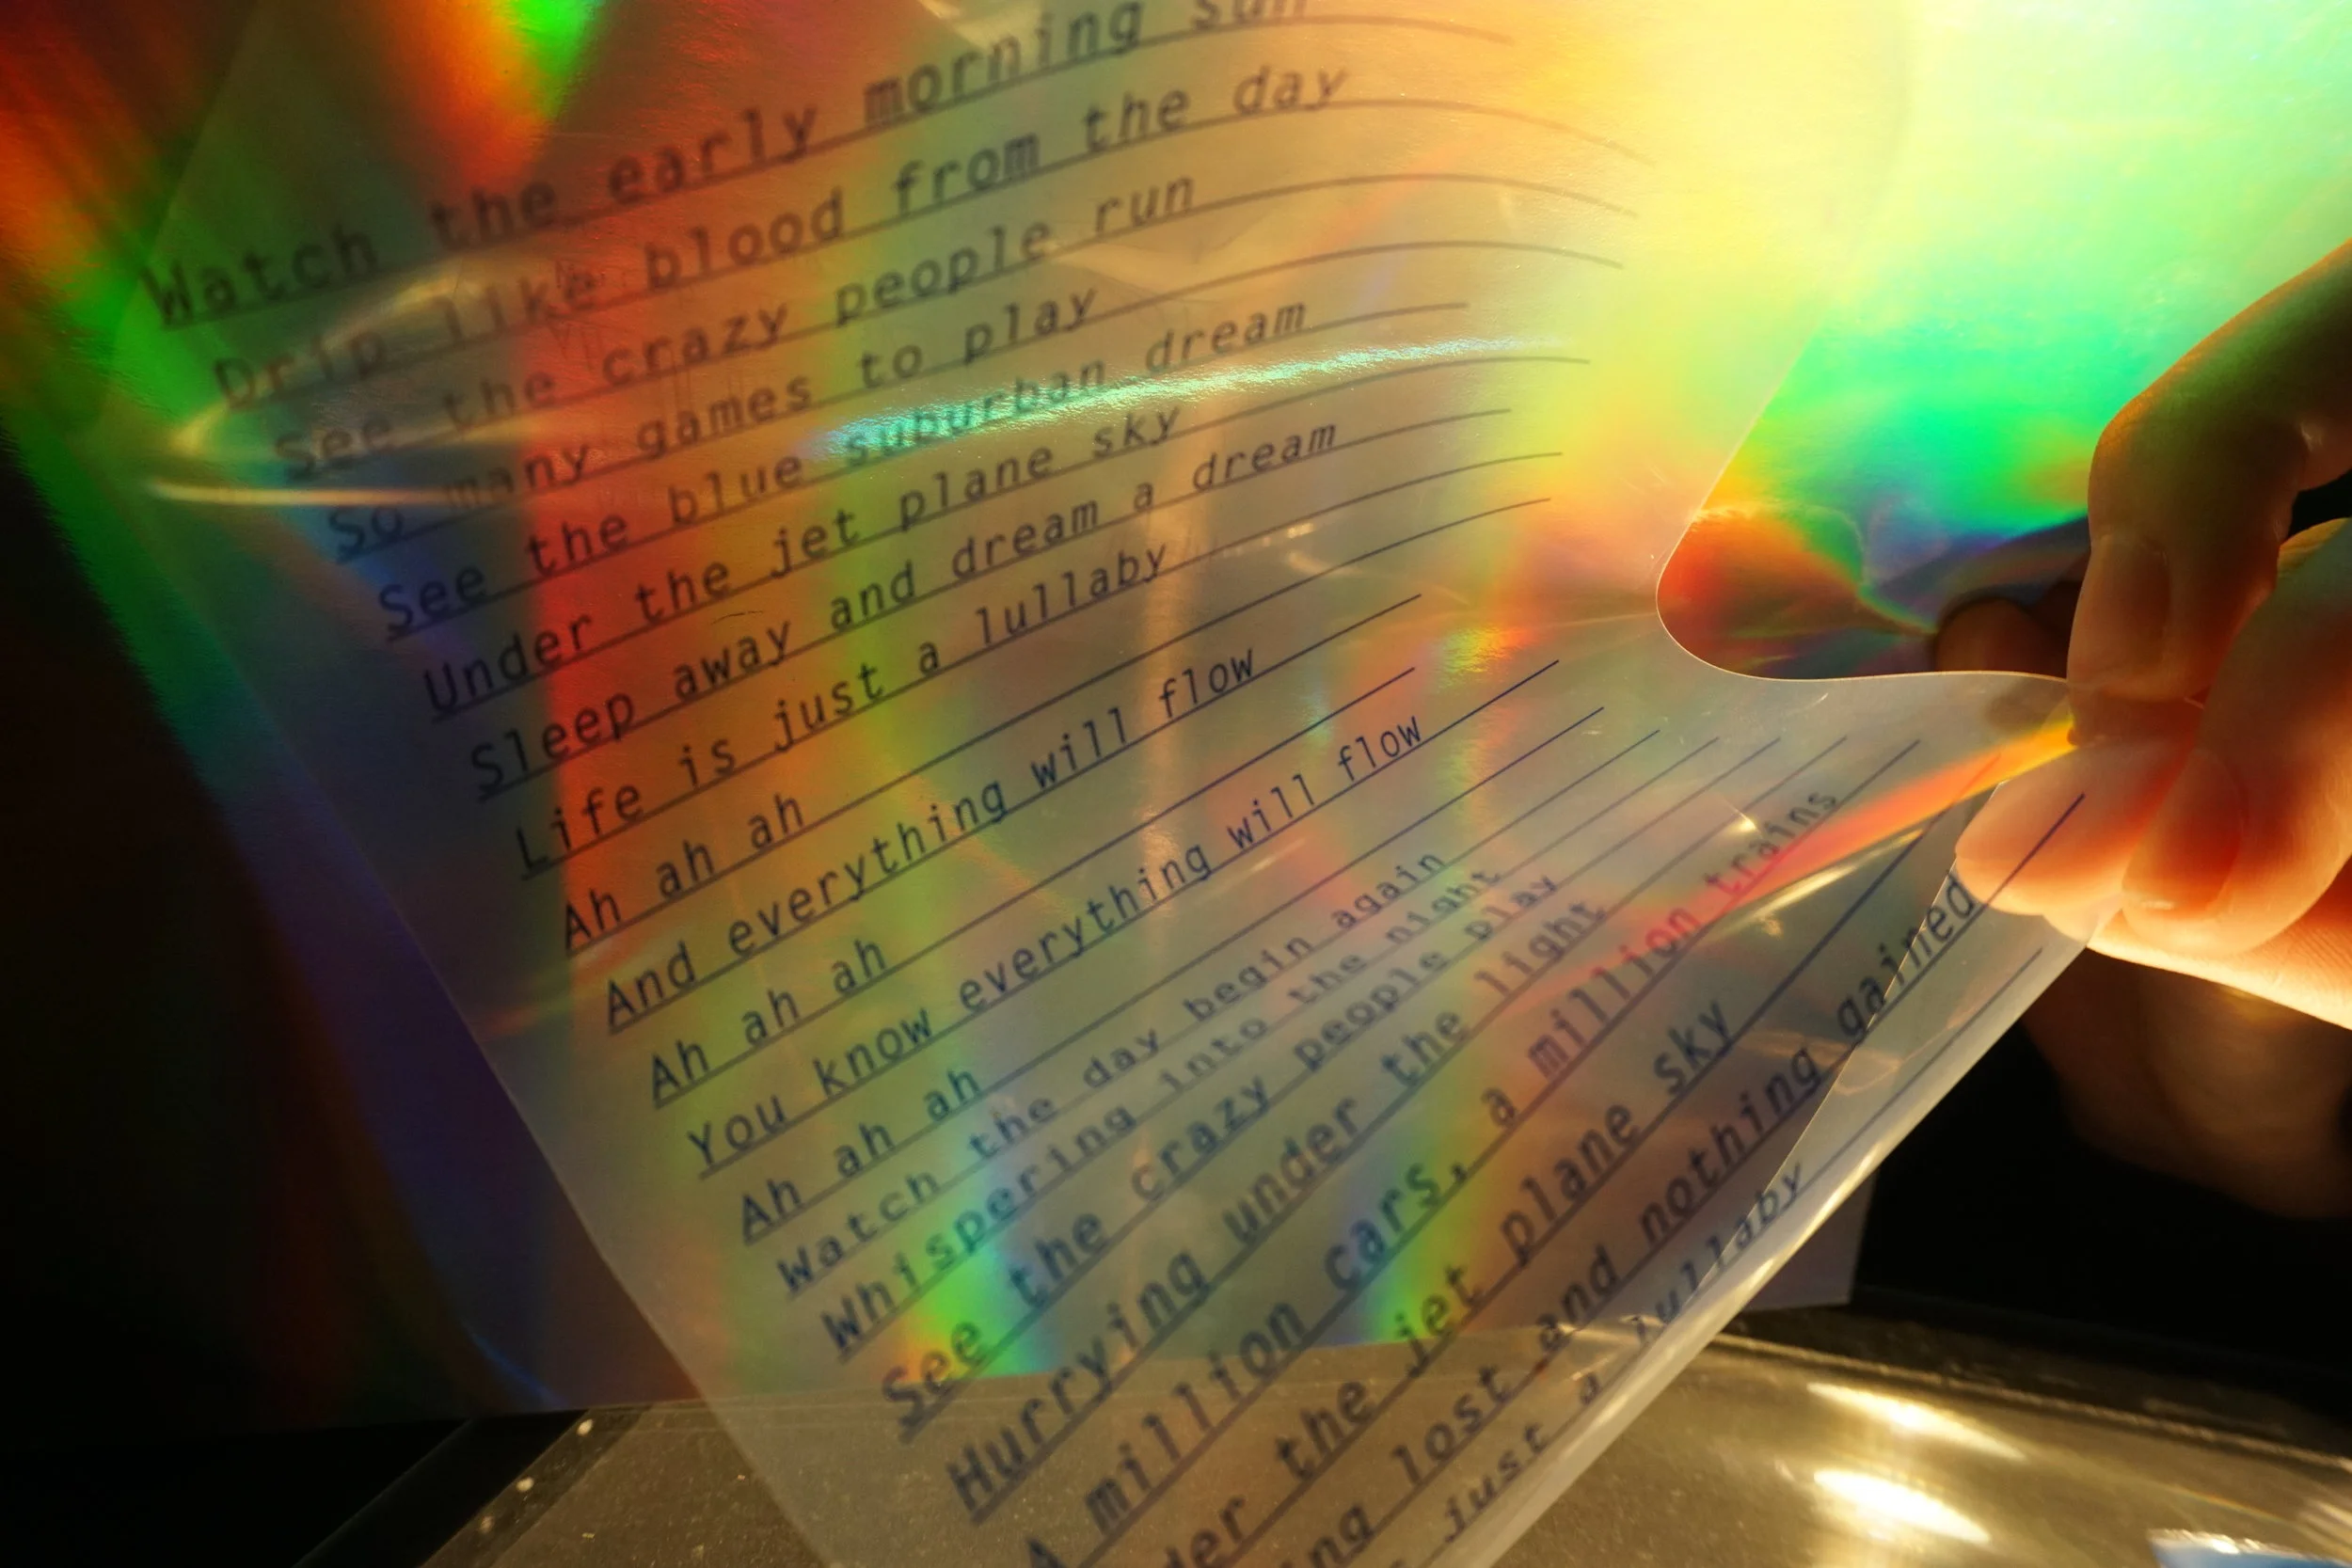 Watch the early morning sun
Drip like blood from the day
See the crazy people run
So many games to play
See the blue suburban dream
Under the jet plane sky
Sleep away and dream a dream
Life is just a lullaby
Ah ah ah
And everything will flow
Ah ah ah
You know everything will flow
Ah ah ah
Watch the day begin again
Whispering into the night
See the crazy people play
Hurrying under the light
A million cars, a million trains
the jet plane sky
lost and nothing gained
just a lullaby